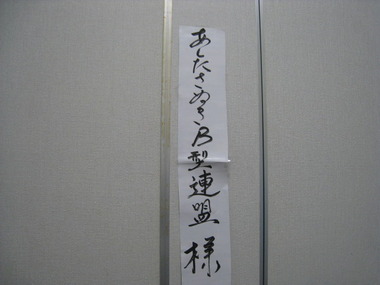 あしたさぬきB型連盟様